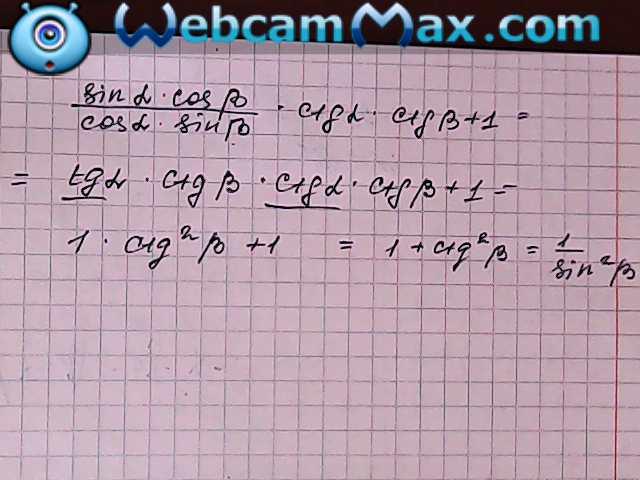 WebcamMax.com
sin α · cos β / cos α · sin β · ctg α · ctg β + 1 =
= tg α · ctg β · ctg α · ctg β + 1 =
1 · ctg² β + 1 = 1 + ctg² β = 1 / sin² β